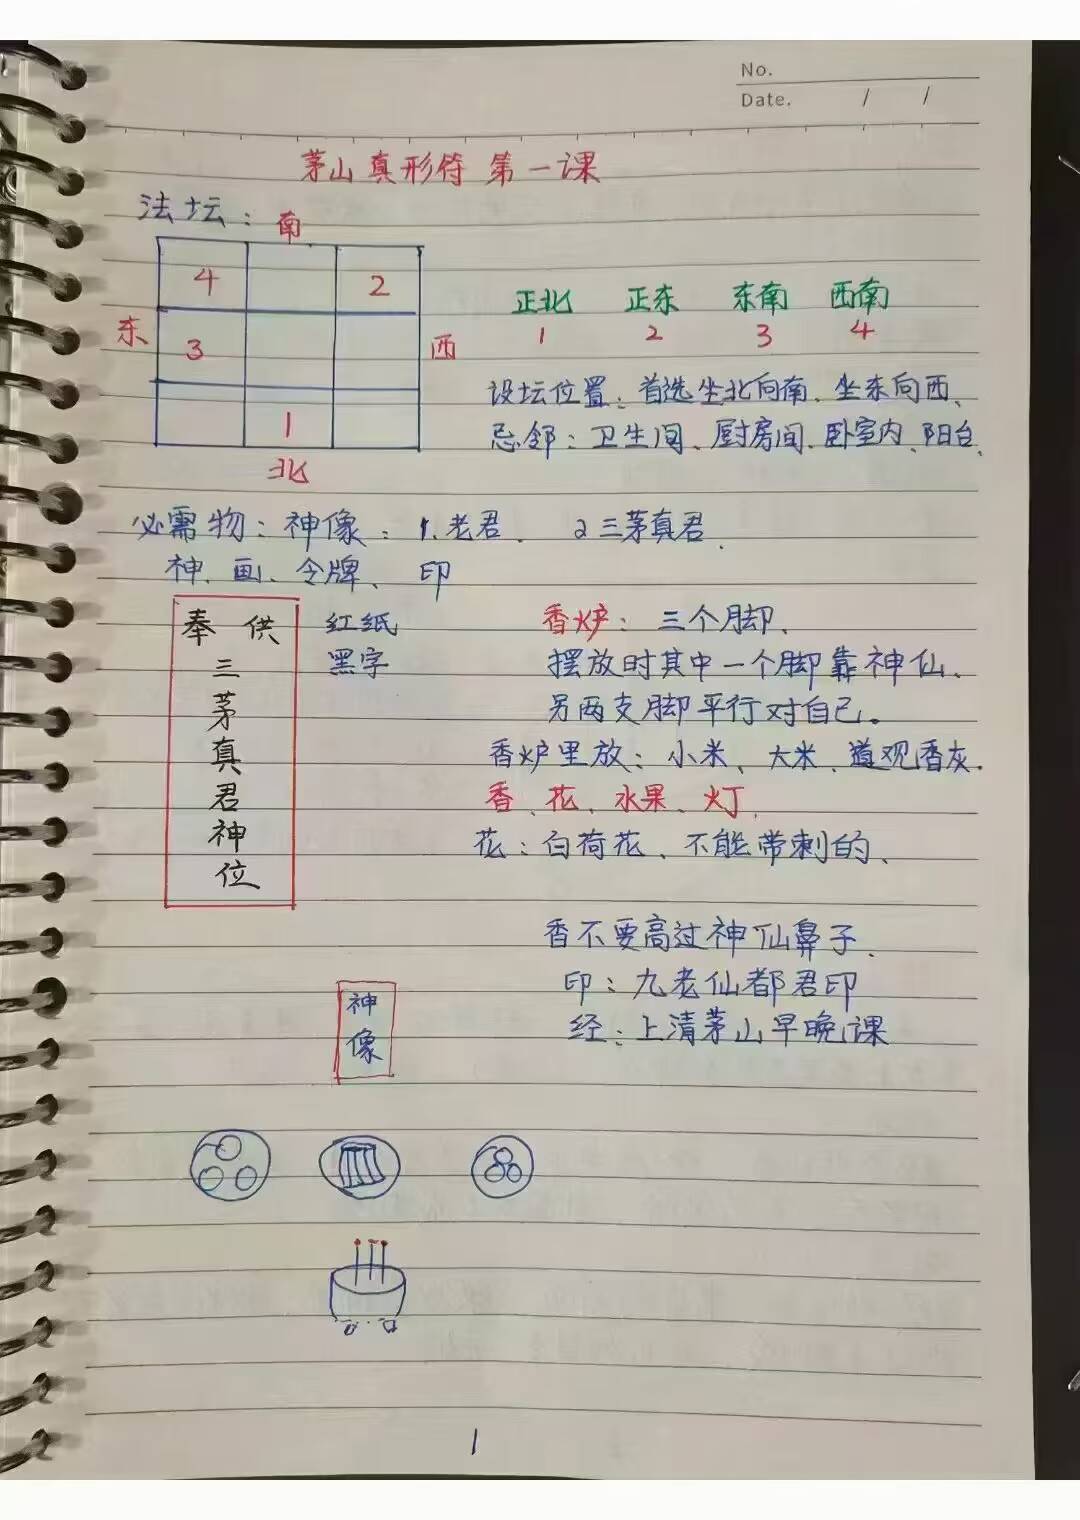 No.
Date. / /
茅山真形符 第一课
法坛: 南
4 2
东 3 西
1
北
正北 正东 东南 西南
1 2 3 4
设坛位置:首选坐北向南、坐东向西、
忌邻:卫生间、厨房间、卧室内、阳台、
必需物:神像:1.老君. 2三茅真君.
神、画、令牌、印
奉供
三茅真君神位
红纸
黑字
香炉:三个脚、
摆放时其中一个脚靠神仙、
另两支脚平行对自己。
香炉里放:小米、大米、道观香灰.
香、花、水果、灯、
花:白荷花、不能带刺的、
香不要高过神仙鼻子、
印:九老仙都君印
经:上清茅山早晚课
神像
1